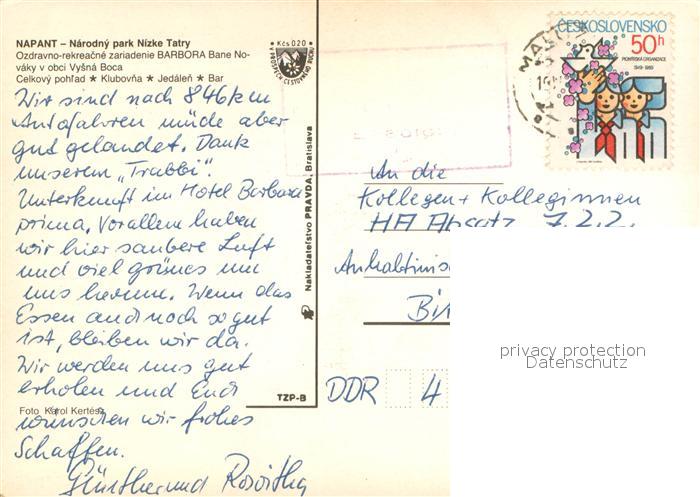 NAPANT – Národný park Nízke Tatry
Ozdravno-rekreačné zariadenie BARBORA Bane No-
váky v obci Vyšná Boca
Celkový pohľad ★ Klubovňa ★ Jedáleň ★ Bar
Kčs 0,20
V PROSPECH CESTOVNÉHO RUCHU
Wir sind nach 846 km
Autofahren müde aber
gut gelandet. Dank
unserem „Trabbi".
Unterkunft im Hotel Barbara
prima. Vorallem haben
wir hier saubere Luft
und viel grünes um
uns herum. Wenn das
Essen auch noch so gut
ist, bleiben wir da.
Wir werden uns gut
erholen und Euch
wünschen wir frohes
Schaffen.
Günther und Roswitha
Foto Karol Kertész
Nakladateľstvo PRAVDA, Bratislava
TZP-B
ČESKOSLOVENSKO
50h
PIONÝRSKÁ ORGANIZACE
1949-1989
An die
Kollegen + Kolleginnen
HA Absatz 7.2.2.
DDR 4
privacy protection
Datenschutz